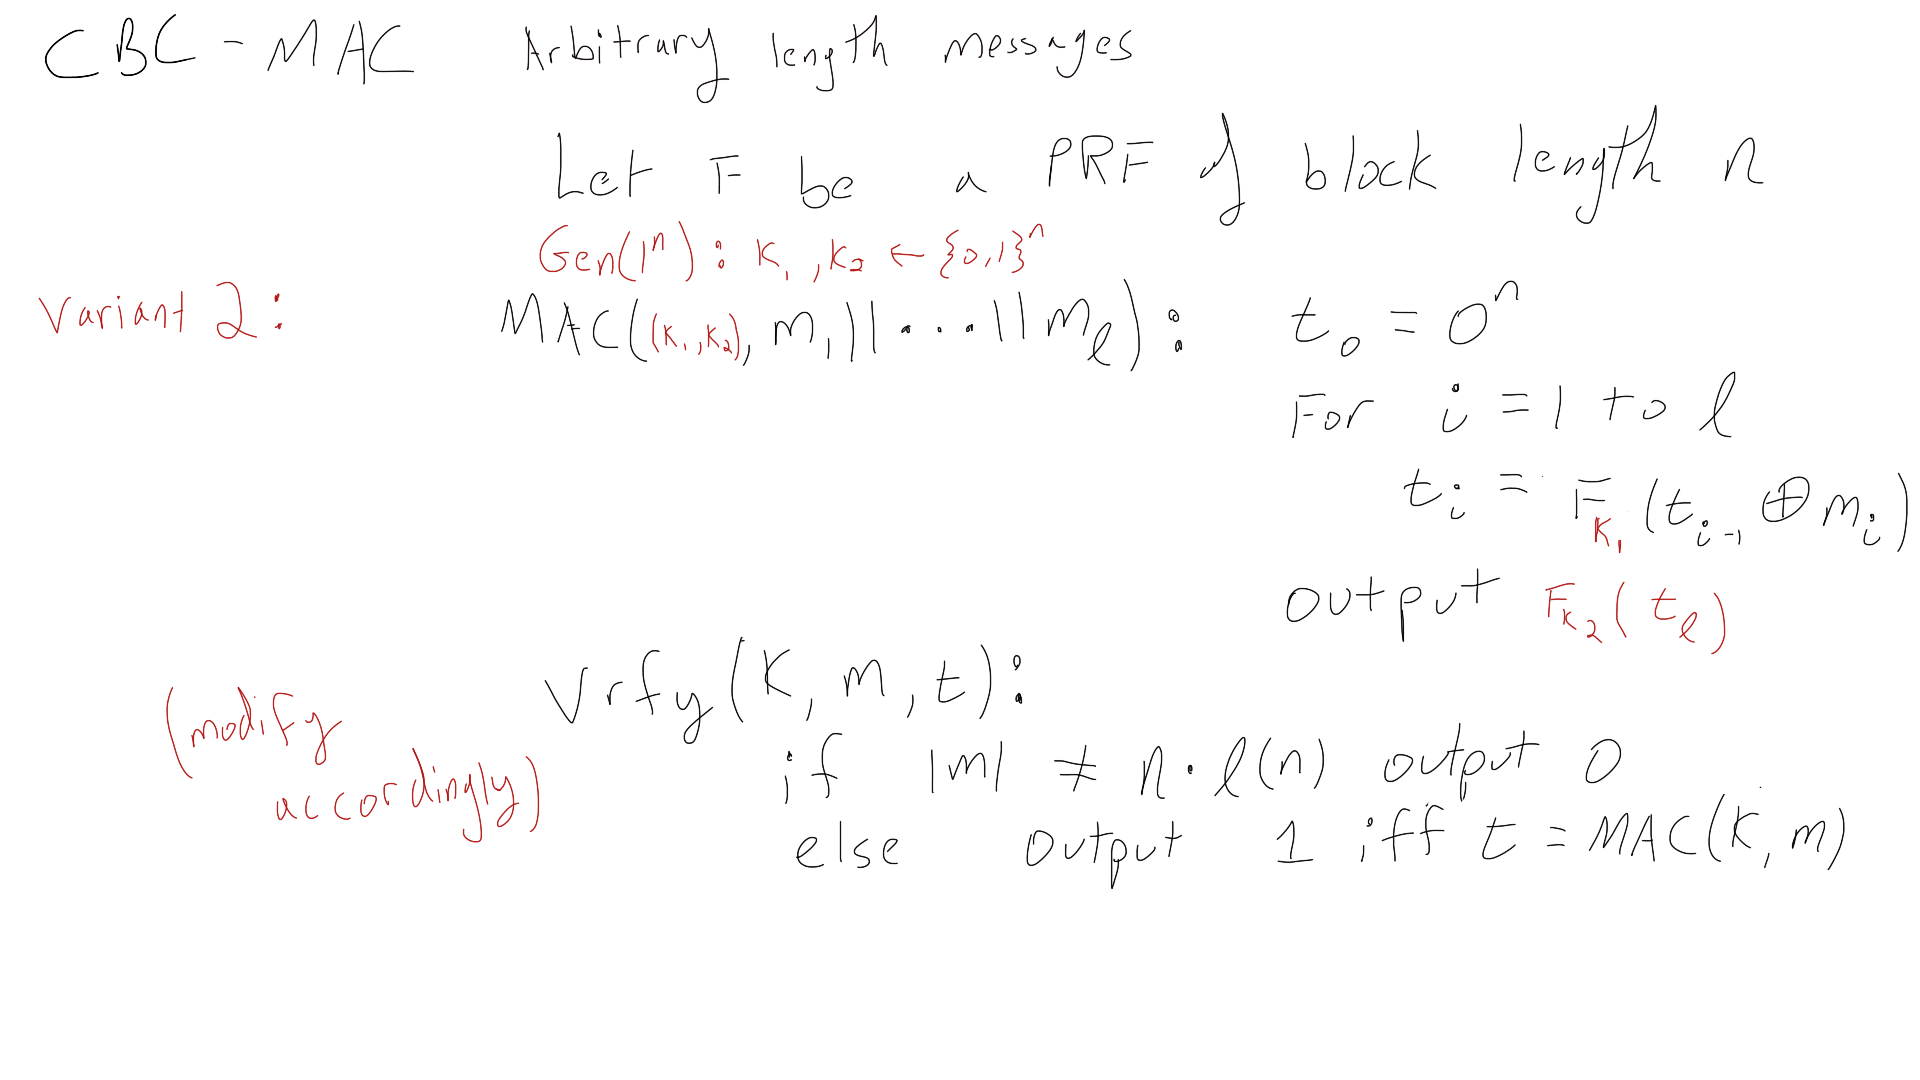 CBC - MAC Arbitrary length messages
Let F be a PRF of block length n
Gen(1ⁿ) : K₁, K₂ ← {0,1}ⁿ
Variant 2: MAC((K₁,K₂), m₁||...||m_ℓ): t₀ = 0ⁿ
For i = 1 to ℓ
tᵢ = F_K₁(tᵢ₋₁ ⊕ mᵢ)
output F_K₂(t_ℓ)
Vrfy(K, m, t):
(modify
if |m| ≠ n·ℓ(n) output 0
accordingly)
else output 1 iff t = MAC(K, m)